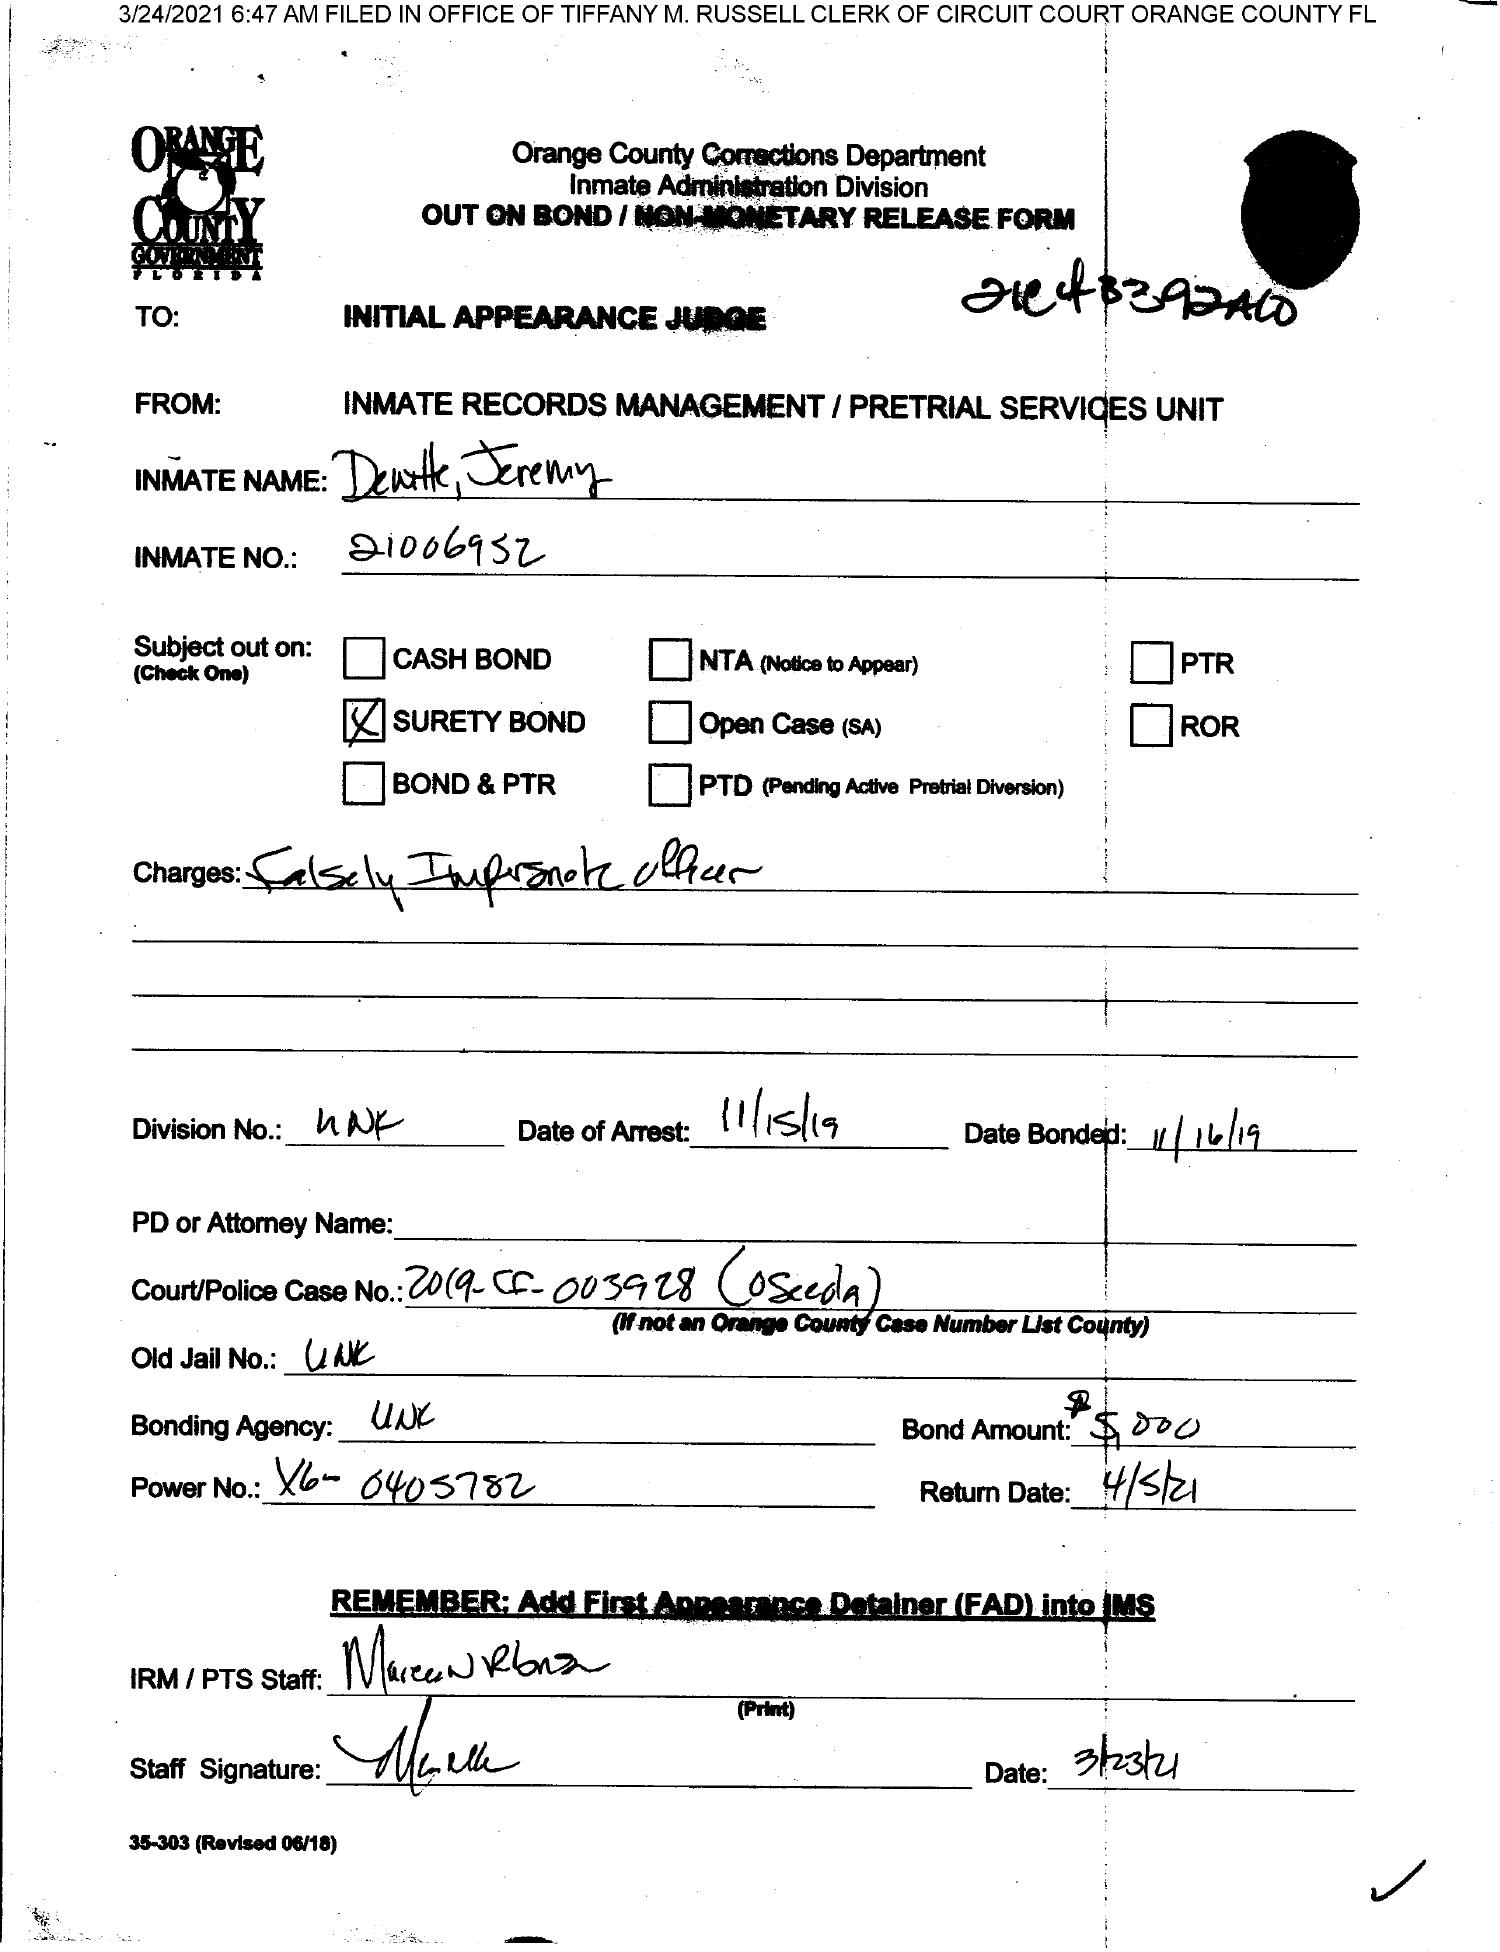 3/24/2021 6:47 AM FILED IN OFFICE OF TIFFANY M. RUSSELL CLERK OF CIRCUIT COURT ORANGE COUNTY FL
ORANGE
COUNTY
GOVERNMENT
FLORIDA
Orange County Corrections Department
Inmate Administration Division
OUT ON BOND / NON-MONETARY RELEASE FORM
TO: INITIAL APPEARANCE JUDGE
FROM: INMATE RECORDS MANAGEMENT / PRETRIAL SERVICES UNIT
INMATE NAME: Dewitte, Jeremy
INMATE NO.: 21006952
Subject out on:
(Check One)
CASH BOND NTA (Notice to Appear) PTR
X SURETY BOND Open Case (SA) ROR
BOND & PTR PTD (Pending Active Pretrial Diversion)
Charges: Falsely Impersnate officer
Division No.: UNK Date of Arrest: 11/15/19 Date Bonded: 11/16/19
PD or Attorney Name:
Court/Police Case No.: 2019-CF-003928 (Osceola)
(If not an Orange County Case Number List County)
Old Jail No.: UNK
Bonding Agency: UNK Bond Amount: $5,000
Power No.: X6-0405782 Return Date: 4/5/21
REMEMBER: Add First Appearance Detainer (FAD) into IMS
IRM / PTS Staff:
(Print)
Staff Signature: Date: 3/23/21
35-303 (Revised 06/18)